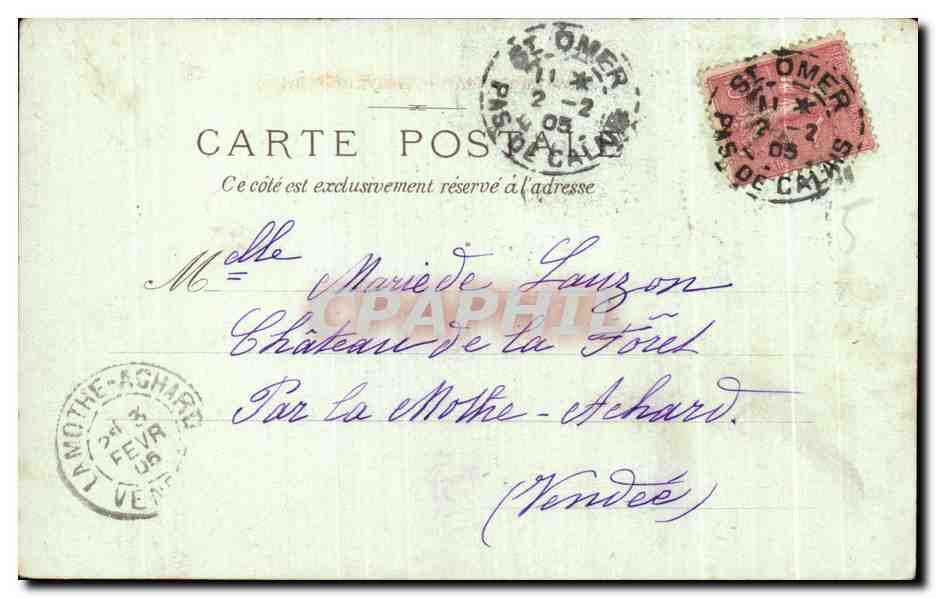 ST OMER
11 *
2 - 2
05
PAS DE CALAIS
ST OMER
11 *
2 - 2
05
PAS DE CALAIS
CARTE POSTALE
Ce côté est exclusivement réservé à l'adresse
Melle Marie de Lauzon
CPAPHIL
Château de la Fôret
Par la Mothe-Achard.
(Vendée)
LA MOTHE-ACHARD
3
FEVR
05
VEN
5